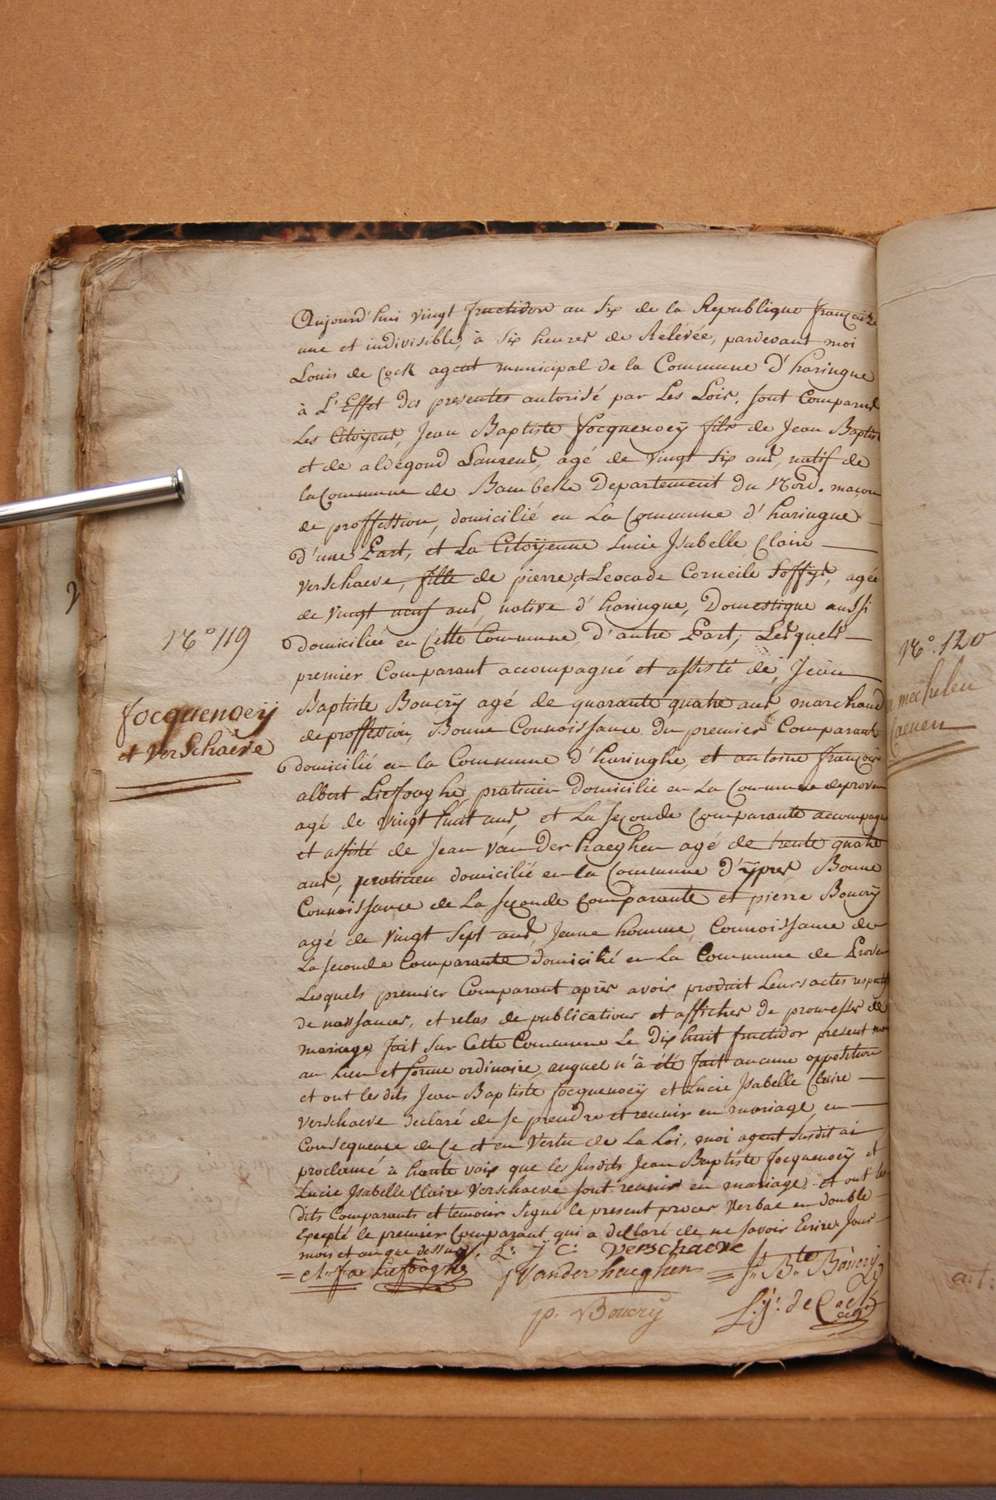 Aujourd'hui vingt fructidor an six de la Republique françoise
une et indivisible, à six heures de Relevée, pardevant moi
Louis de Cock agent municipal de la Commune d'haringue
à L'Effet des presentes autorisé par Les Loix, sont Comparus
Les Citoyens, Jean Baptiste focquenoeÿ fils de Jean Baptist
et de aldegond Laurens, agé de vingt six ans, natif de
la Commune de Bambeke Departement du Nord, maçon
de proffession, domicilié en La Commune d'haringue
d'une Part, et La Citoÿenne Lucie Isabelle Claire
Verschaeve, fille de pierre, et Leocade Corneile Toffijn, agée
de vingt neuf ans, native d'haringue, Domestique aussi
domiciliée en Cette Commune d'autre Part, Lesquels
premier Comparant accompagné et assisté de, Jean
N° 119
Baptiste Boucrÿ agé de quarante quatre ans marchand
focquenoeÿ
et Verschaeve
de proffession, Bonne Connoissance du premier Comparant
domicilié en la Commune d'haringhe, et antoine françois
albert Liefooghe praticien domicilié en La Commune de proven
agé de vingt huit ans, et La seconde Comparante accompagné
et assisté de Jean Van der haeghen agé de trente quatre
ans, praticien domicilié en la Commune d'ÿpres Bonne
Connoissance de La seconde Comparante et pierre Boucrÿ
agé de vingt sept ans, Jeune homme, Connoissance de
La seconde Comparante domicilié en La Commune de Proven
Lesquels premier Comparant après avoir produit Leurs actes respectifs
de naissances, et relas de publications et affiches de promesses de
mariage, fait sur Cette Commune Le dix huit fructidor present mois
au Lieu et forme ordinaire, auquel n'à été fait aucune opposition
et ont lesdits Jean Baptiste focquenoeÿ et Lucie Isabelle Claire
Verschaeve declaré de se prendre et reunir en mariage, en
Consequence de Ce et en Vertu de La Loi, moi agent susdit ai
proclamé à haute voix que les susdits Jean Baptiste focquenoeÿ et
Lucie Isabelle Claire Verschaeve sont reunis en mariage et ont les
dits Comparants et temoins Signé le present proces Verbae en double
Excepté le premier Comparant qui a declaré de ne savoir Ecrire Jour
mois et an que dessus. L: J C: Verschaeve
A: fa Liefooghe J Vanderhaeghen J: Bte Boucrÿ
p. Boucrÿ L: J: de Cock
N°. 120
mechelen